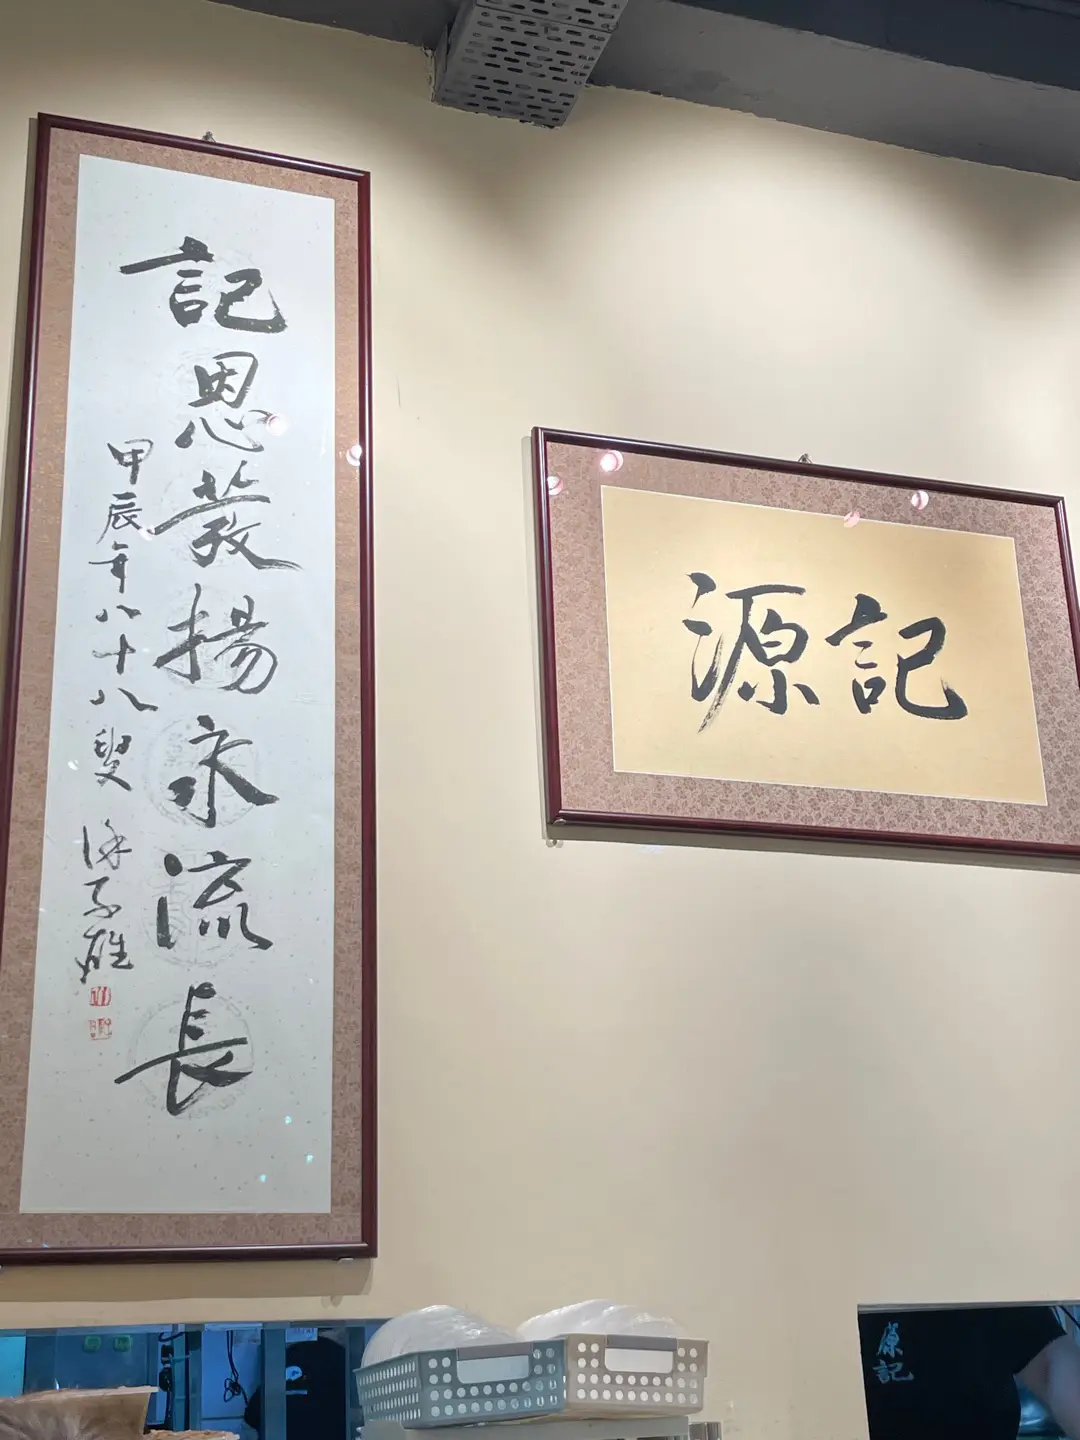 記恩發揚永流長
甲辰年八十八叟
徐子雄
源記
源記